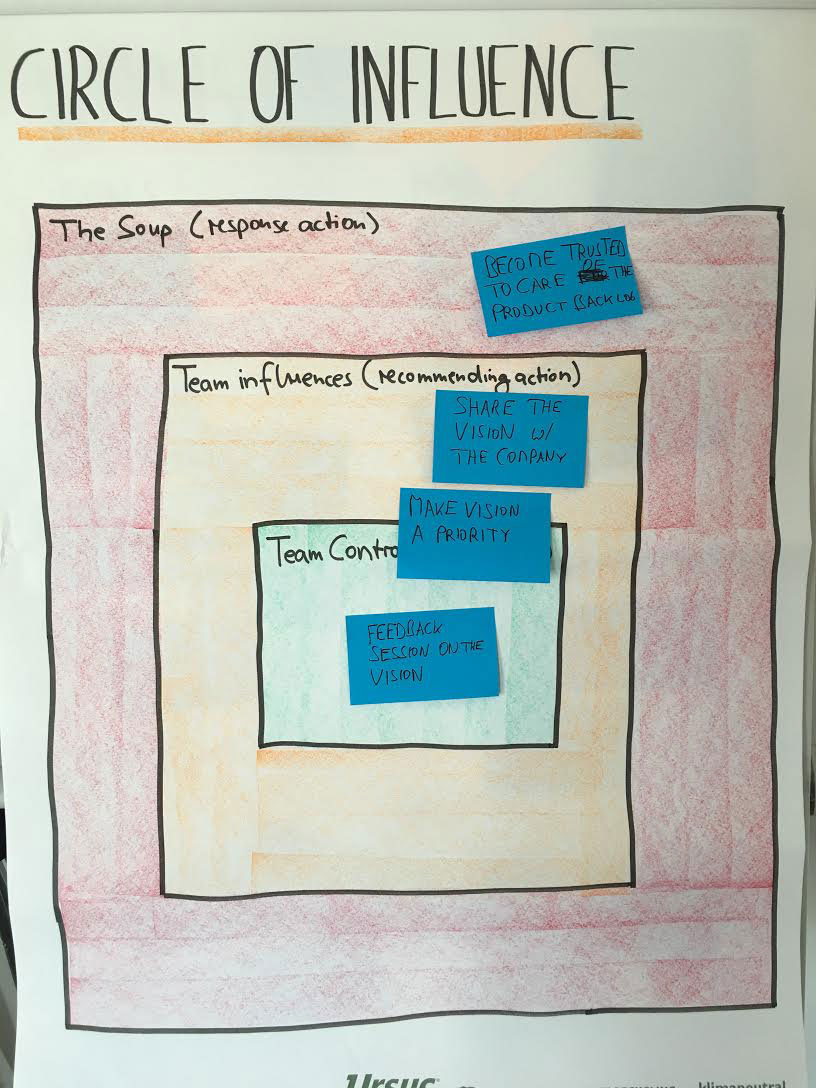 CIRCLE OF INFLUENCE
The Soup (response action)
BECOME TRUSTED
OF
TO CARE THE
PRODUCT BACKLOG
Team influences (recommending action)
SHARE THE
VISION W/
THE COMPANY
MAKE VISION
A PRIORITY
Team Contro
)
FEEDBACK
SESSION ON THE
VISION
Ursus
klimaneutral